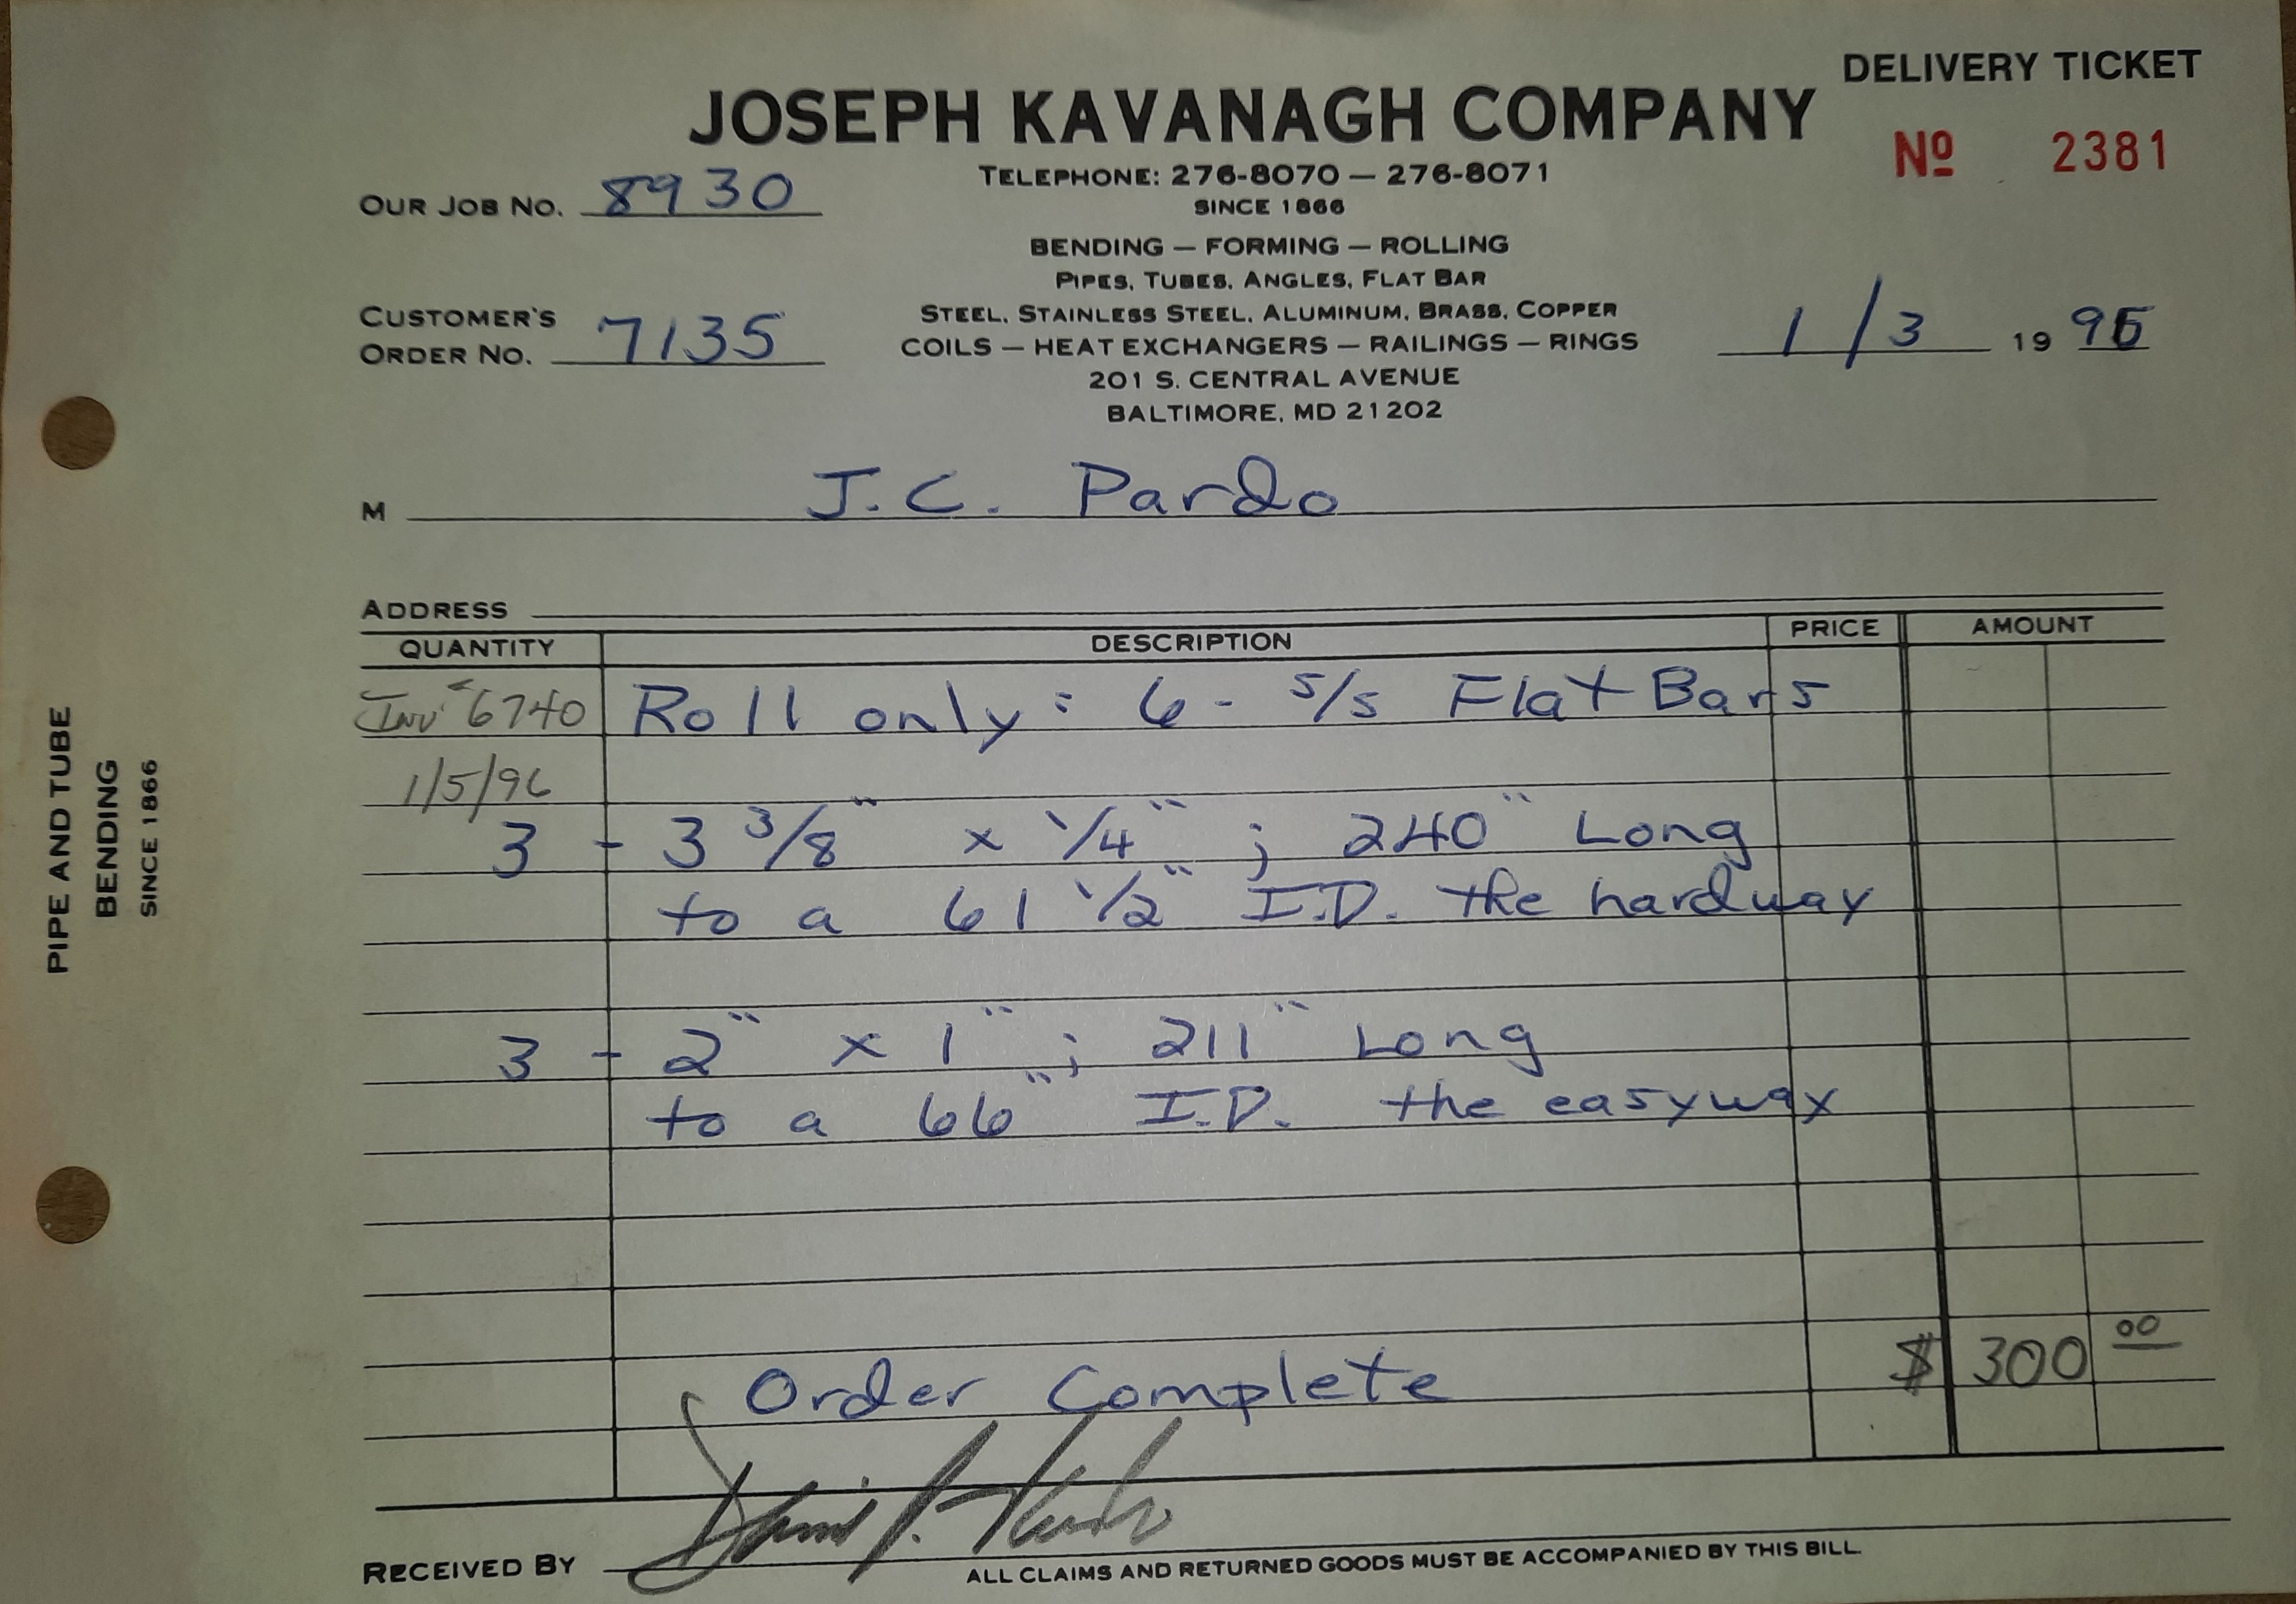 DELIVERY TICKET
JOSEPH KAVANAGH COMPANY
Nº 2381
TELEPHONE: 276-8070 — 276-8071
SINCE 1866
OUR JOB NO. 8930
BENDING — FORMING — ROLLING
PIPES, TUBES, ANGLES, FLAT BAR
STEEL, STAINLESS STEEL, ALUMINUM, BRASS, COPPER
CUSTOMER'S
ORDER NO. 7135
COILS — HEAT EXCHANGERS — RAILINGS — RINGS
1/3 1996
201 S. CENTRAL AVENUE
BALTIMORE, MD 21202
M J.C. Pardo
ADDRESS
QUANTITY DESCRIPTION PRICE AMOUNT
Inv # 6740 Roll only: 6 - s/s Flat Bars
1/5/96
3 - 3 3/8" x 1/4" ; 240" Long
to a 61 1/2" I.D. the hardway
3 - 2" x 1" ; 211" Long
to a 66" I.D. the easyway
$ 300 00
Order Complete
RECEIVED BY
ALL CLAIMS AND RETURNED GOODS MUST BE ACCOMPANIED BY THIS BILL.
PIPE AND TUBE
BENDING
SINCE 1866